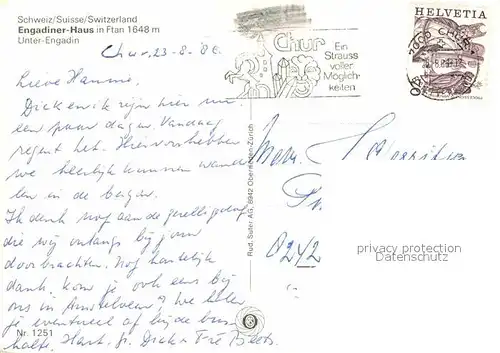 Schweiz/Suisse/Switzerland
Engadiner-Haus in Ftan 1648 m
Unter-Engadin
Chur, 23-8-86
Chur
Ein
Strauss
voller
Möglich-
keiten
HELVETIA
7000 CHUR
Lieve Hannie,
Dick en ik zijn hier nu
een paar dagen. Vandaag
regent het. Hiervoor hebben
we heerlijk kunnen wande
len in de bergen.
Ik denk nog aan de gezellige dag
die wij onlangs bij jou
doorbrachten. Nog hartelijk
dank. Kom je ook eens bij
ons in Amstelveen? We halen
je eventueel af bij de bus
halte. Hart. gr. Dick + Fré
Mevr.
8242
privacy protection
Datenschutz
Rud. Suter AG, 8942 Oberrieden-Zürich
Nr. 1251